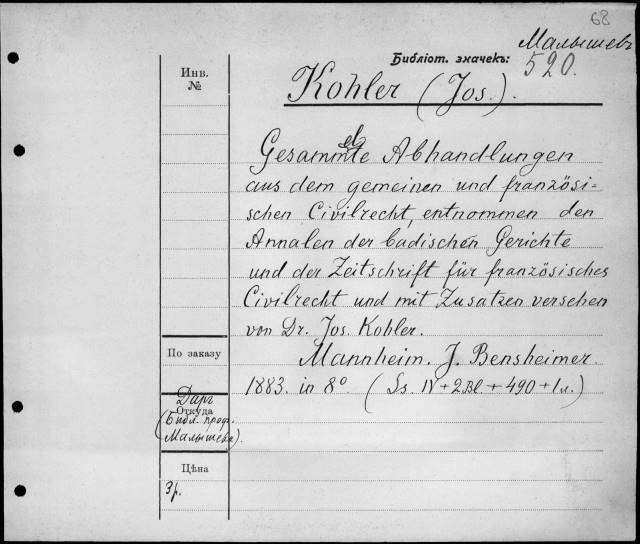 68
Малышевъ
Библіот. значекъ:
520.
Инв.
№
Kohler (Jos.).
Gesammelte Abhandlungen
aus dem gemeinen und französi=
schen Civilrecht, entnommen den
Annalen der badischen Gerichte
und der Zeitschrift für französisches
Civilrecht und mit Zusatzen versehen
von Dr. Jos. Kohler.
По заказу
Mannheim. J. Bensheimer.
1883. in 8º. (Ss. IV + 2 Bl. + 490 + 1 л.)
Даръ
Откуда
(Библ. проф.
Малышева).
Цѣна
3 р.